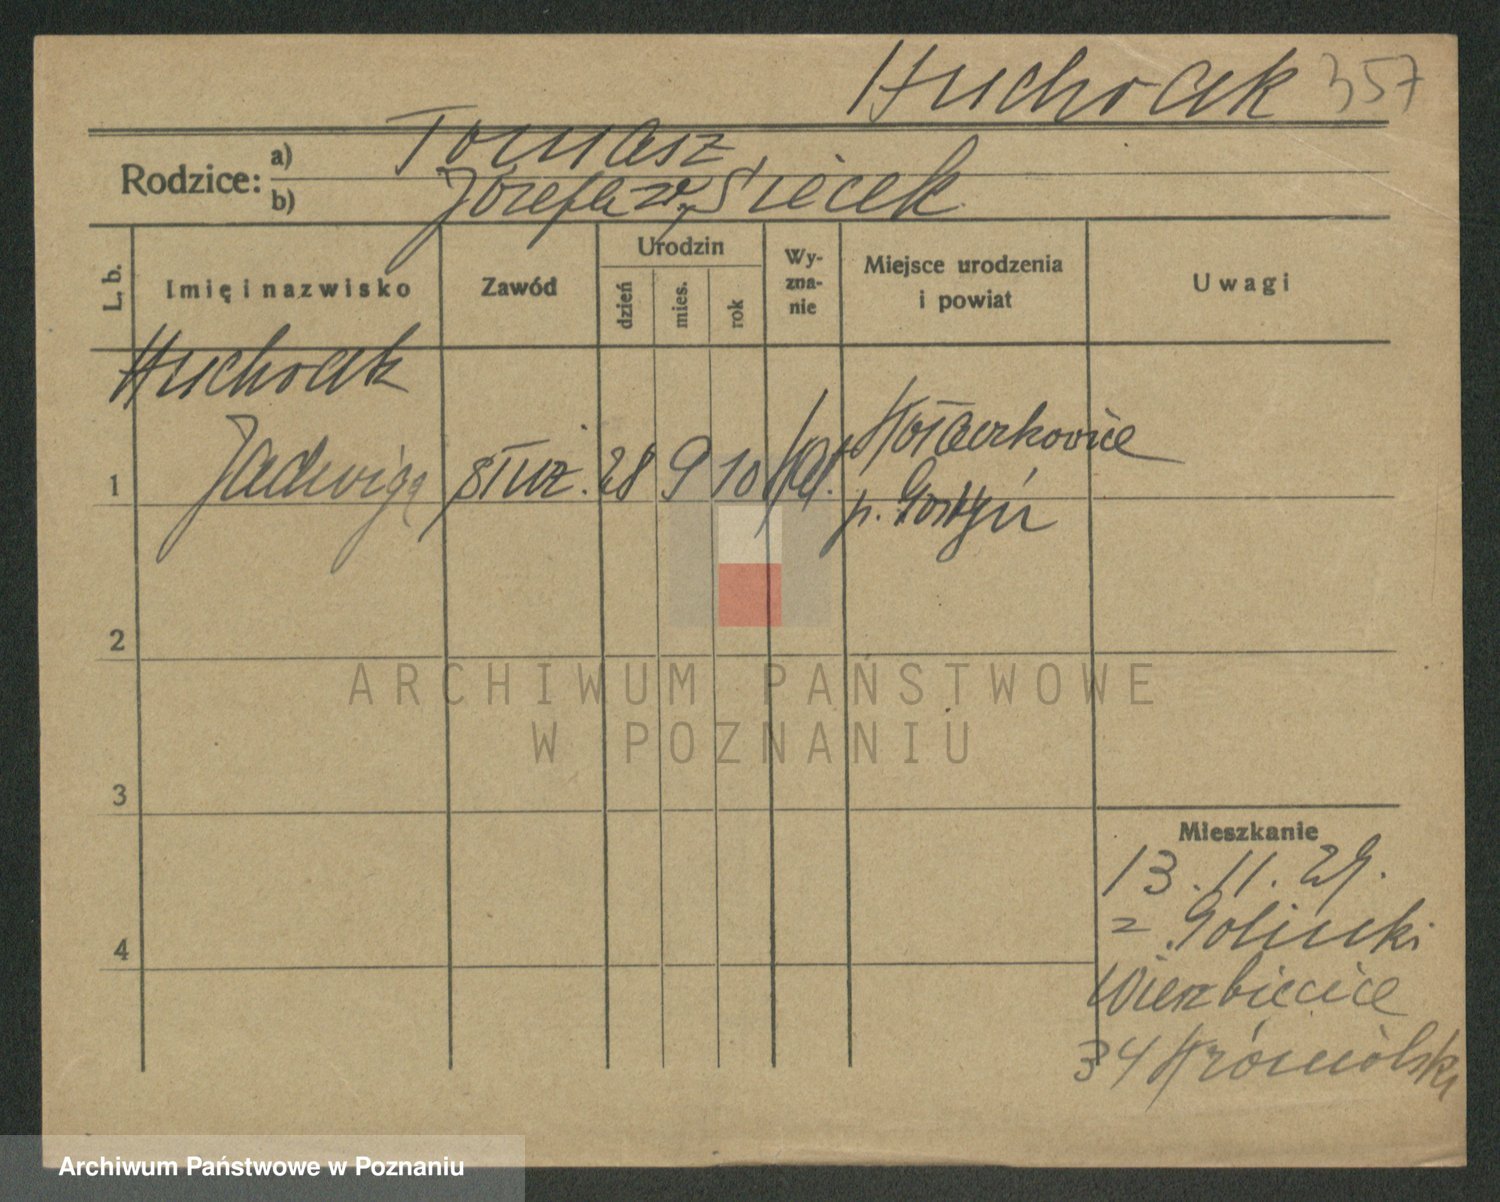 Huchrak 357
Rodzice:
a) Tomasz
b) Józefa z d. Siecek
L. b.
Imię i nazwisko
Zawód
Urodzin
dzień
mies.
rok
Wy-
zna-
nie
Miejsce urodzenia
i powiat
Uwagi
Huchrak
1 Jadwiga służ. 28 9 10 kat.
p. Gostyń
2
3
4
Mieszkanie
13.11.29.
Wierzbięcice
34
ARCHIWUM PAŃSTWOWE
W POZNANIU
Archiwum Państwowe w Poznaniu